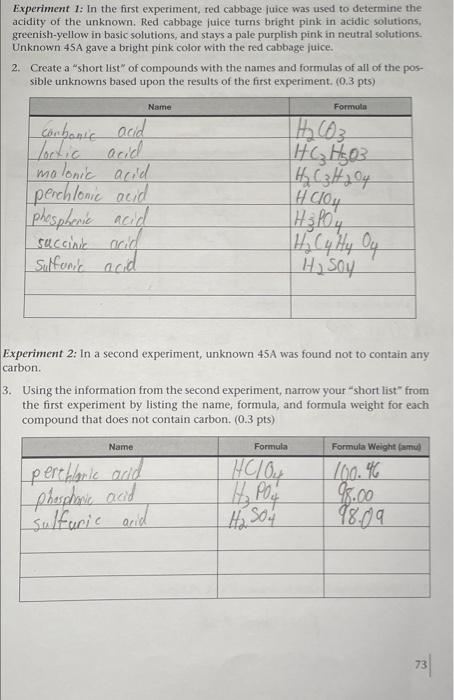 Experiment 1: In the first experiment, red cabbage juice was used to determine the
acidity of the unknown. Red cabbage juice turns bright pink in acidic solutions,
greenish-yellow in basic solutions, and stays a pale purplish pink in neutral solutions.
Unknown 45A gave a bright pink color with the red cabbage juice.
2. Create a "short list" of compounds with the names and formulas of all of the pos-
sible unknowns based upon the results of the first experiment. (0.3 pts)
Name Formula
carbonic acid H₂CO₃
lactic acid HC₃H₅O₃
malonic acid H₂C₃H₂O₄
perchloric acid HClO₄
phosphoric acid H₃PO₄
succinic acid H₂C₄H₄O₄
sulfuric acid H₂SO₄
Experiment 2: In a second experiment, unknown 45A was found not to contain any
carbon.
3. Using the information from the second experiment, narrow your "short list" from
the first experiment by listing the name, formula, and formula weight for each
compound that does not contain carbon. (0.3 pts)
Name Formula Formula Weight (amu)
perchloric acid HClO₄ 100.46
phosphoric acid H₃PO₄ 98.00
sulfuric acid H₂SO₄ 98.09
73